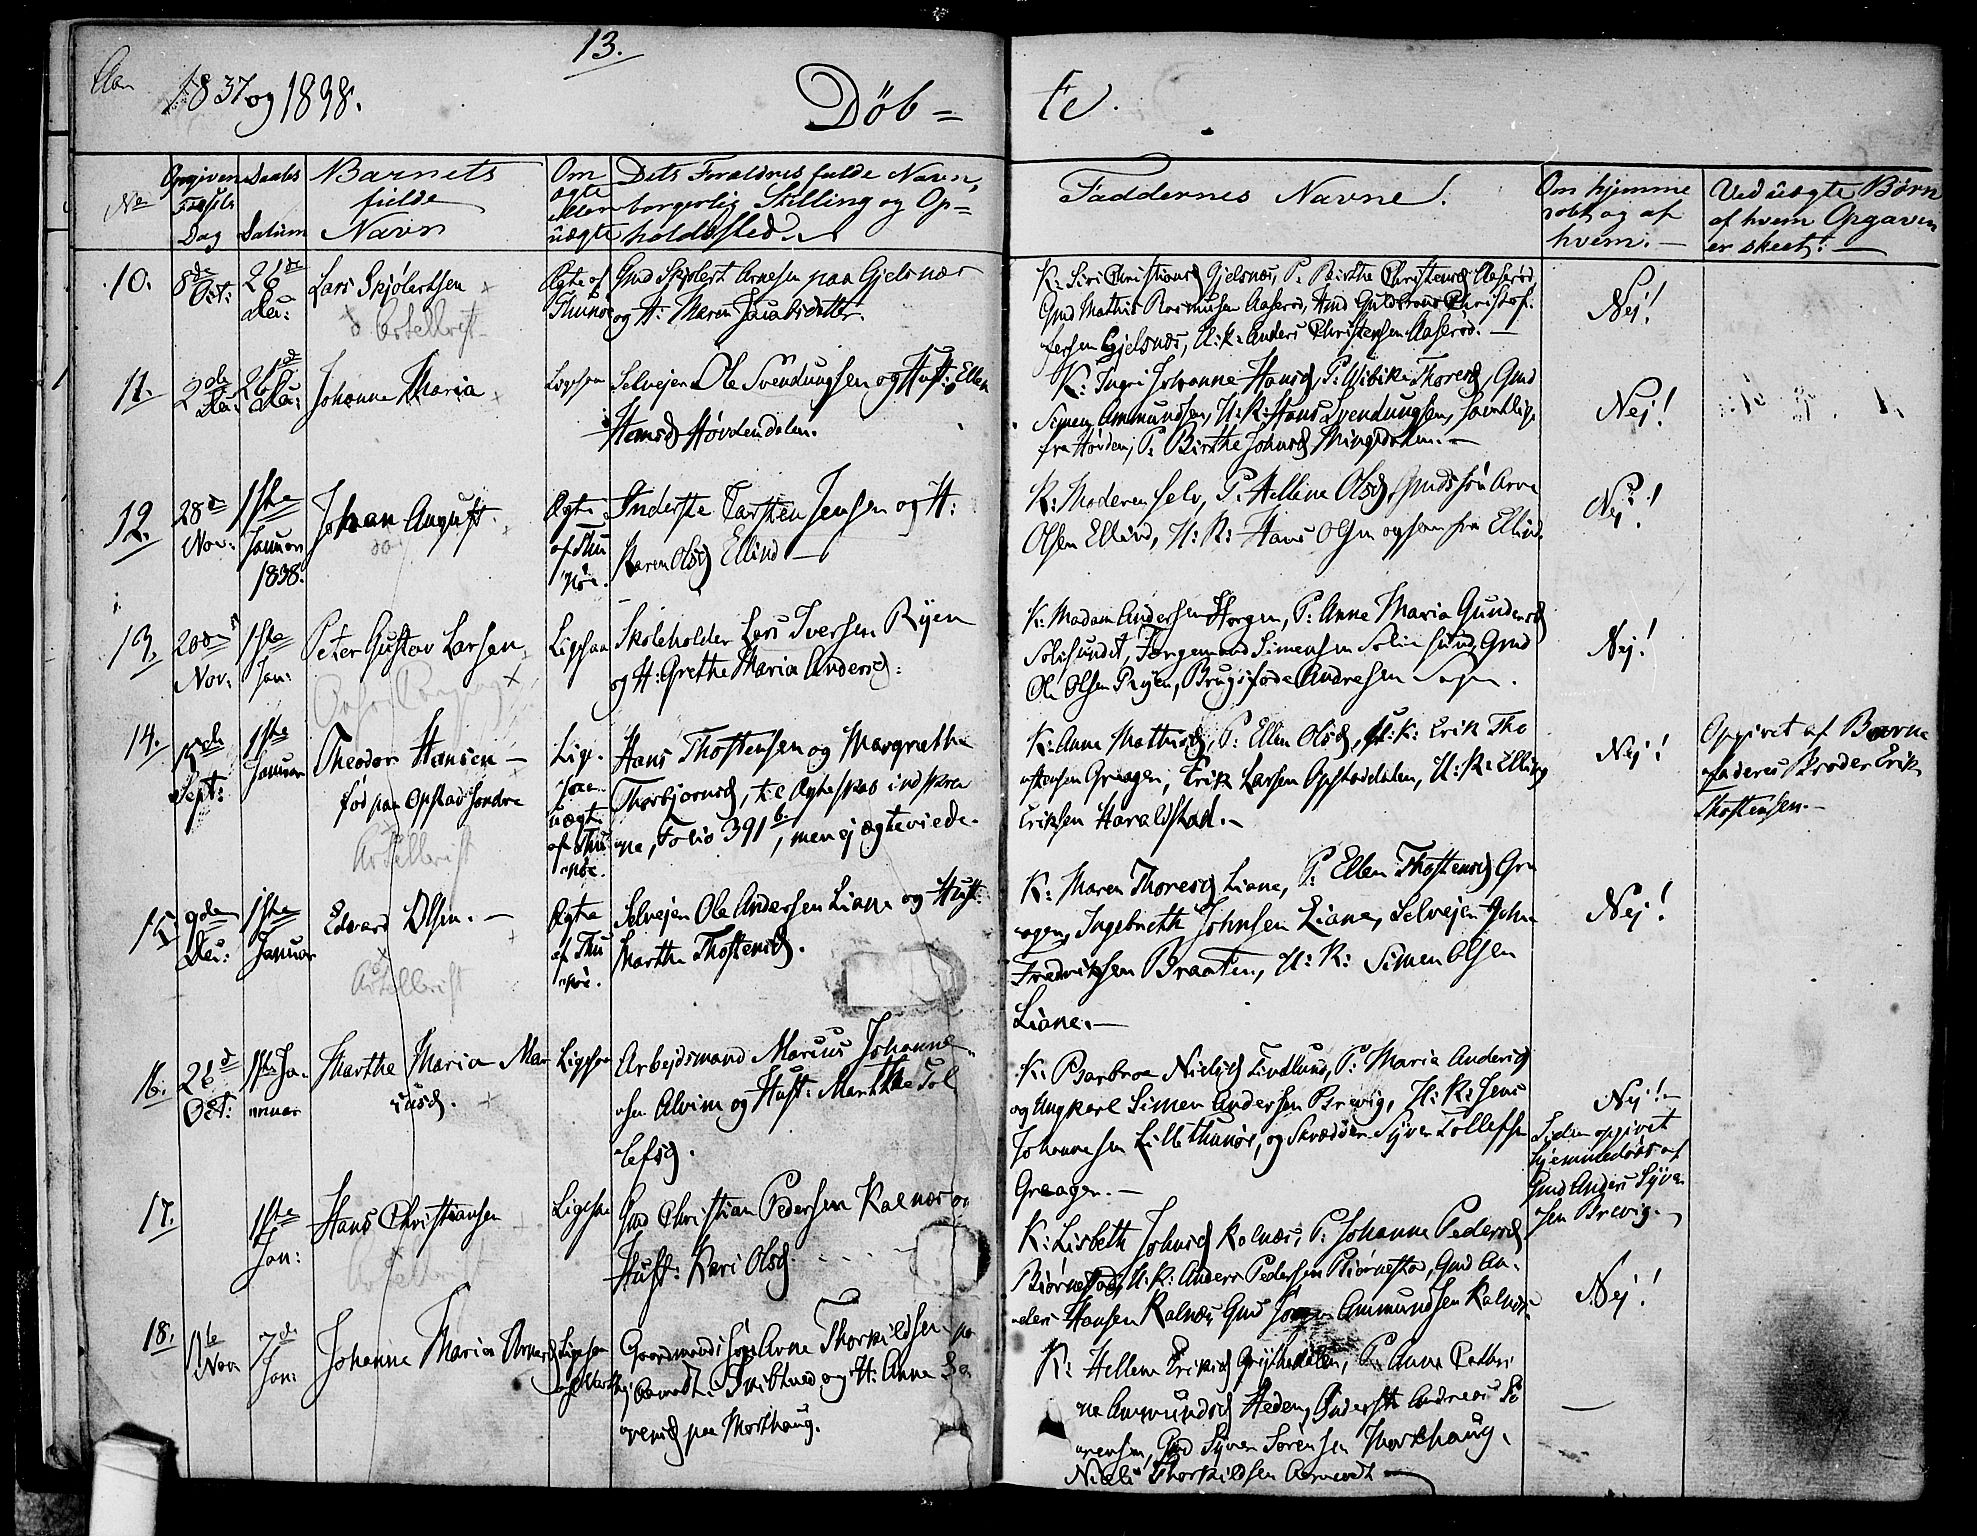 13.
Aar 1837 og 1838. Døb= te.
No
Opgiven Fødsels Dag
Daabs Datum
Barnets fulde Navn
Om ægte eller uægte
Dets Forældres fulde Navn, borgerlig Stilling og Op=
holdssted.
Faddernes Navne!
Om hjemme
døbt og af
hvem.—
Ved uægte Børn
af hvem Opgaven
er skeet!—
10.
8de Oct:
26de Dec:
Lars Skjølertsen
Ægte af Thunøe
Gmd Skjølert Arnesen paa Gjelsnæs
og H: Maren Jacobsdatter.
K: Siri Christiansd Gjelsnæs, P. Birthe Christensd Aaserød,
Gmd Mathis Rasmusen Aaserød, Gmd Guldbrand Christof-
fersen Gjelsnæs, U:K: Anders Christensen Aaserød.—
Nej!
11.
2de Dec:
26de Dec:
Johanne Maria
Ligesaa
Selvejer Ole Svendungsen og Hust: Ellen
Hansd Høvdendalen.
K: Ingri Johanne Hansd, P: Wibike Thoresd, Gmd
Simen Ammundsen, U:K: Hans Svendungsen, samtlig.
fra Høvden, P. Birthe Johnsd
Nej!
12.
28de Nov:
1ste Januar 1838.
Johan August
Ægte af Thunøe.
Inderste Carsten Jensen og H:
Karen Olsd Ellind—
K: Moderen selv, P. Helline Olsd, Gmdssøn Arne
Olsen Ellind, U:K: Hans Olsen ogsaa fra Ellind.
Nej!
13.
20de Nov:
1ste Jan:
Peter Gustav Larsen
Ligesaa
Skoleholder Lars Iversen Ryen
og H: Grethe Maria Andersd:
K: Madam Andersen Horgen, P: Anne Maria Gundersd
Solisundet, Simensen Gmd
Ole Olsen Ryen, Andresen
Nej!
14.
15de Sept:
1ste Januar
Theodor Hansen—
fød paa Opstad søndre
Lige-
uægte
af Thunøe.
Hans Thostensen og Margrethe
Thorbjørnsd, til Ægteskab indskrev-
ne, Folio 391 b, men ej ægteviede.
K: Anne Mattisd, P: Ellen Olsd, U:K: Erik Tho
stensen Graager, Erik Larsen Opstaddalen, U:K: Elling
Eriksen Haraldstad.—
Nej!
Opgivet af Barne
faderes Broder Erik
Thostensen.—
15.
9de Dec:
1ste Januar
Edvard Olsen.—
Ægte af Thunøe.
Selvejer Ole Andersen Liane og Hust:
Marthe Thostensd.
K: Maren Thoresd Liane, P: Ellen Thostensd Gra
ager, Ingebreth Johnsen Liane, Selvejer John
Fredriksen Braaten, U:K: Simen Olsen
Liane.—
Nej!
16.
26d Oct:
1ste Januar
Marthe Maria Mar
iusd.
Ligesaa
Arbejdsmand Marius Johanne-
sen Alvim og Hust: Marthe Tol
lefsd.
K: Barbroe Nielsd Lindlund, P: Maria Andersd
og Ungkarl Simen Andersen Brevig, U:K: Jens
Johannesen Lille Thunøe, og Skrædder Syver Tollefsen
Graager.—
Nej!—
Siden opgivet
hjemmedøbt af
Gmd Anders Syver
sen Brevig.—
17.
1ste Jan:
Hans Christiansen
Ligesaa
Gmd Christian Pedersen Kalnæs og
Hust: Kari Olsd.
K: Lisbeth Johnsd Kalnæs, P. Johanne Pedersd
Bjørnestad, U:K: Anders Pedersen Bjørnestad, Gmd An-
ders Hansen Kalnæs, Gmd Ammundsen Kalnæs
Nej!
18.
1te Nov
7de Jan:
Johanne Maria Arnesd
Ligesaa
Gaardmandssøn Arne Thorkildsen
og H: Anne Sø
rensd paa Morthaug.
K: Hellene Eriksd P. Anne Cathri
ne Ammundsd Heden, Inderste Andreas Sø
rensen, Gmd Syver Sørensen Morthaug,
Niels Thorkildsen—